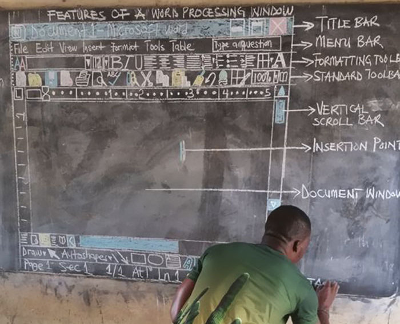 FEATURES OF A WORD PROCESSING WINDOW
Document 1 - Microsoft word
TITLE BAR
File Edit View Insert format Tools Table
Type a question
MENU BAR
B/U
A
FORMATTING TOOLB
100%
STANDARD TOOLBA
1 2 3 4 5
VERTICAL
SCROLL BAR
INSERTION POIN
DOCUMENT WINDOW
Draw Autoshapes
Page 1 Sec 1 1/1 At Ln 1
STA